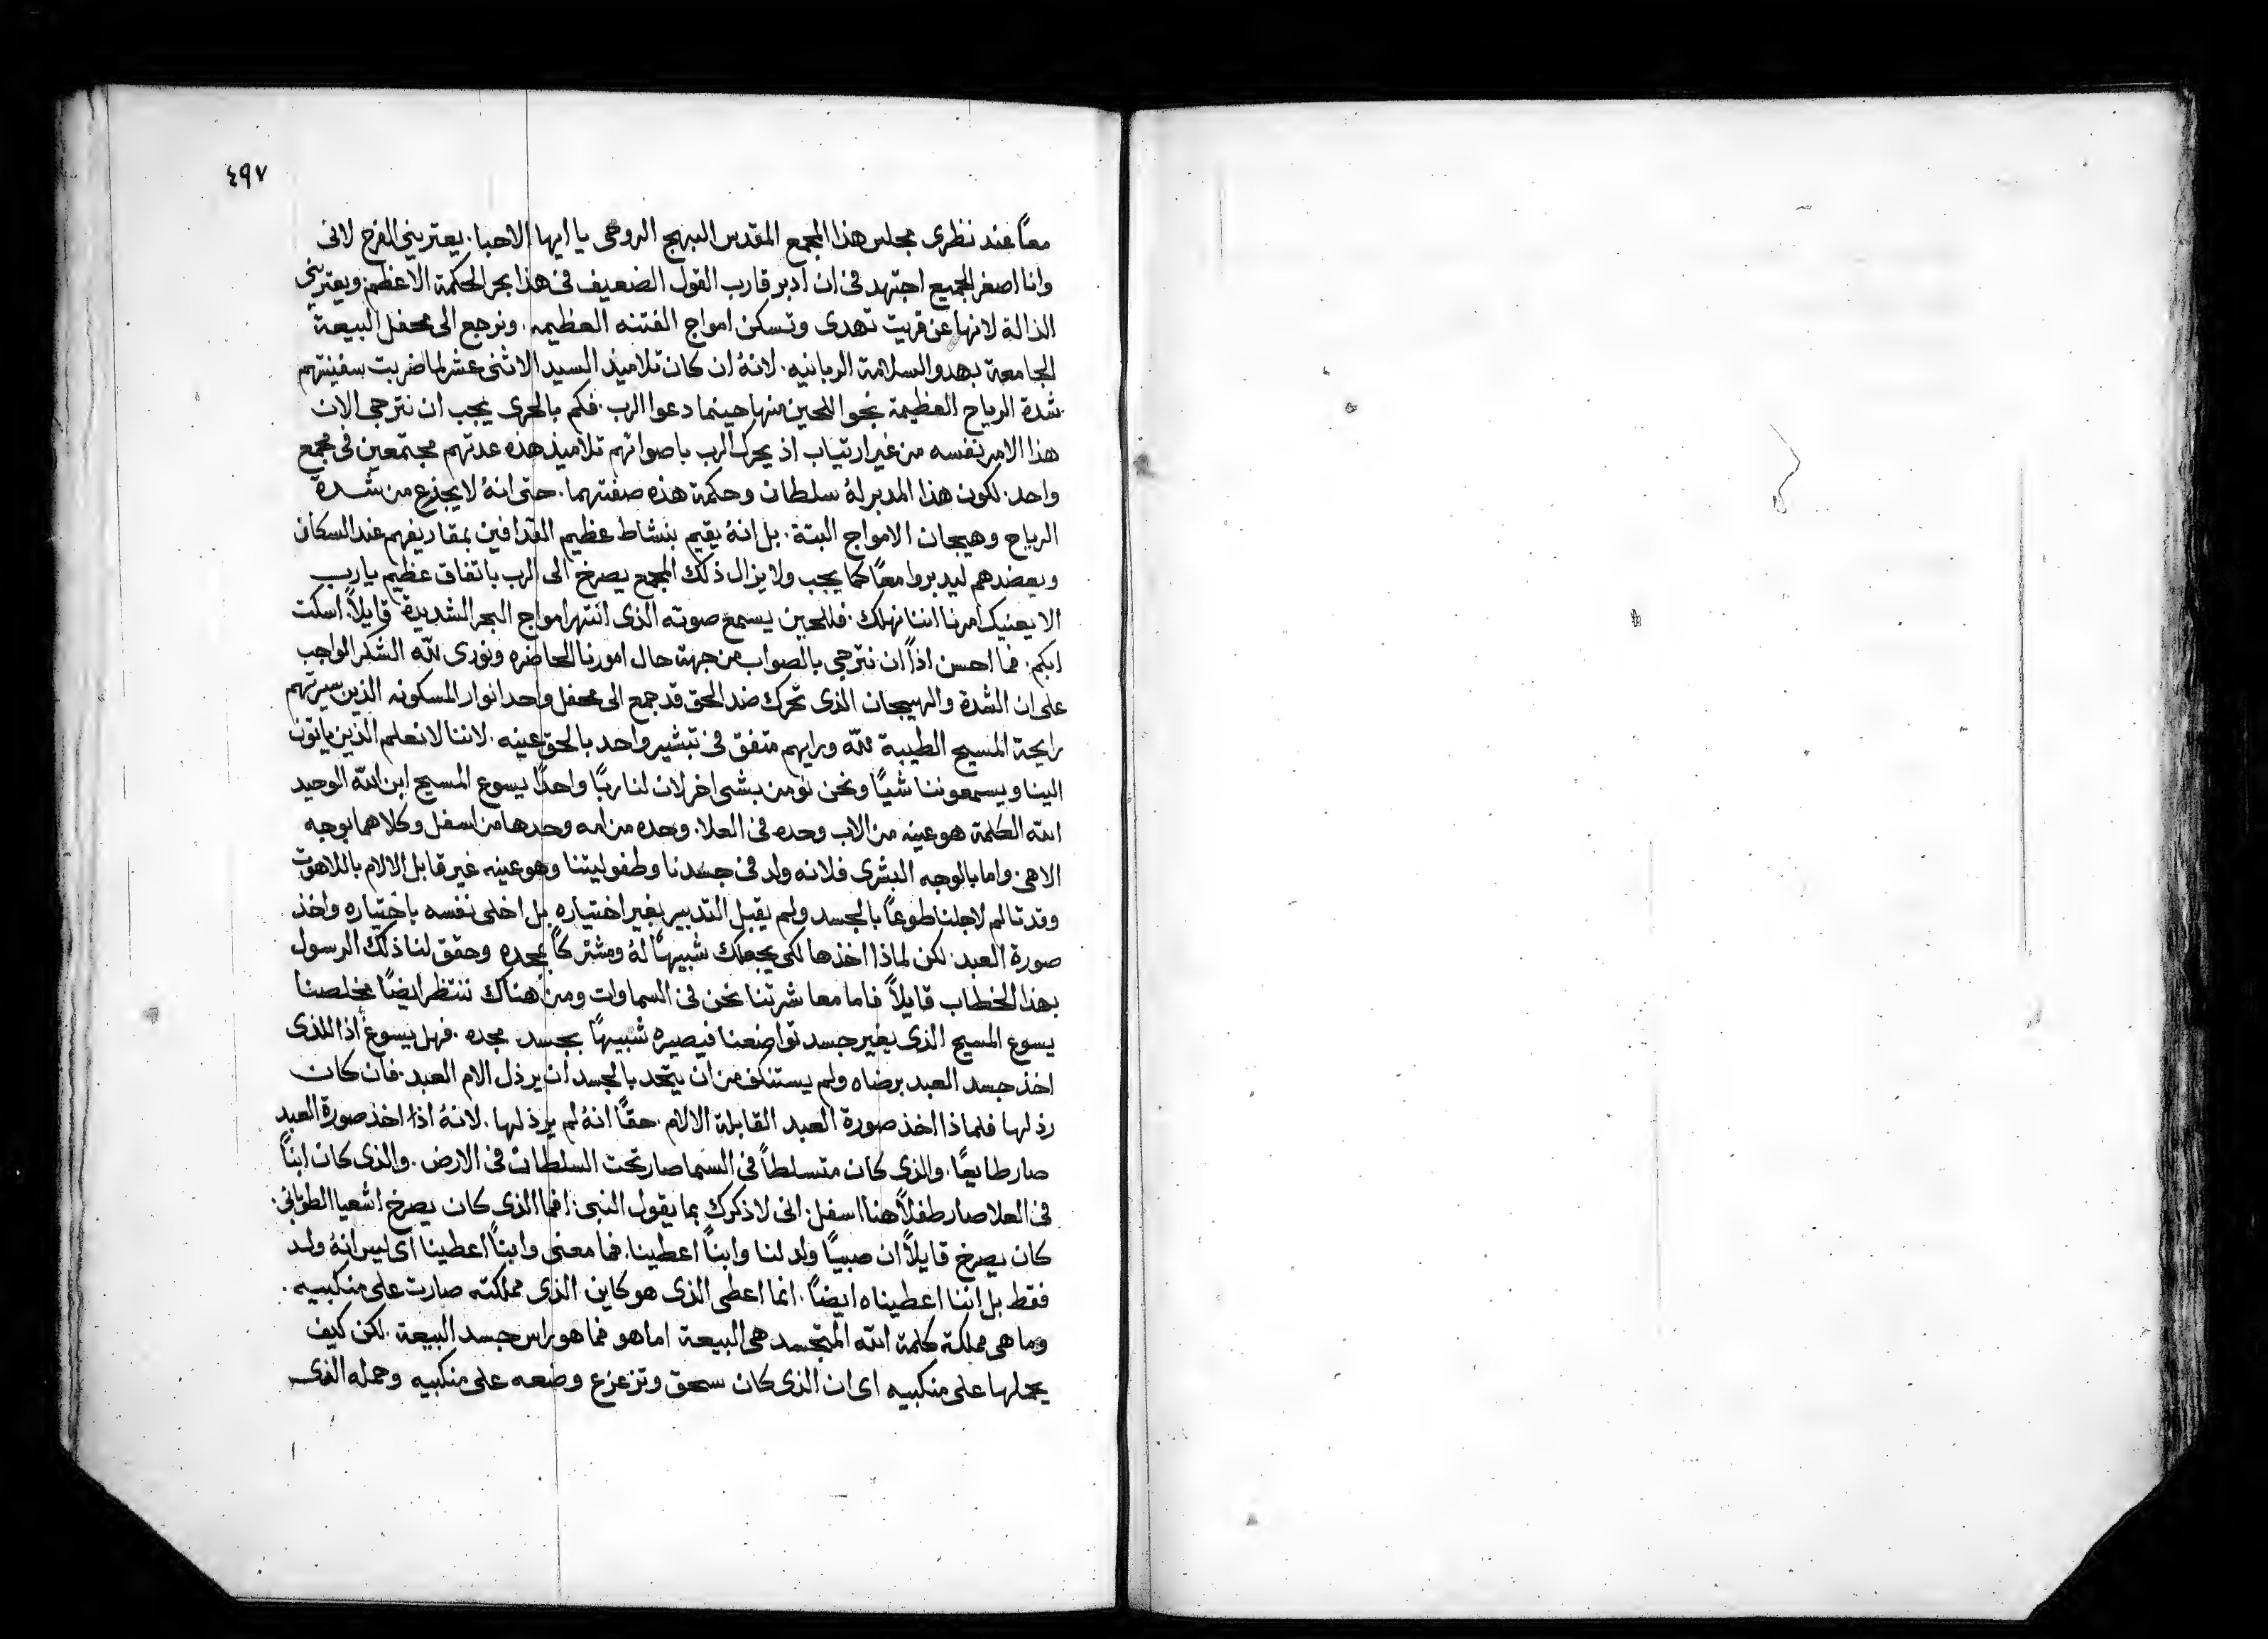 ٤٩٧
معاً عند نظرى مجلس هذا المجمع المقدس البهج الروحى يا ايها الاحبا. يعترينى الفرح لانى
وانا اصغر الجميع اجتهد فى ان ادبر قارب القول الضعيف فى هذا بحر الحكمة الاعظم ويعترينى
الذالة لانها عن قريب تهدى وتسكن امواج الفتنه العظيمه. ونرجع الى محفل البيعة
الجامعة بهدو السلامة الربانيه. لانهُ ان كان تلاميذ السيد الاثنى عشر لما ضربت سفينتهم
شدة الرياح العظيمة نجوا للحين منها حينما دعوا الرب. فكم بالحرى يجب ان نترجى الان
هذا الامر نفسه من غير ارتياب اذ يحرك الرب باصواتهم تلاميذ هذه عدتهم مجتمعين فى مجمع
واحد. لكون هذا المدبر لهُ سلطان وحكمة هذه صفتهما. حتى انهُ لا يجزع من شدة
الرياح وهيجان الامواج البتة. بل انهُ يقيم بنشاط عظيم القذافين بمقاديفهم عند السكان
ويعضدهم ليدبروا معاً كما يجب ولا يزال ذلك المجمع يصرخ الى الرب باتفاق عظيم يا رب
الا يعنيك امرنا اننا نهلك. فللحين يسمع صوته الذى انتهر امواج البحر الشديدة قايلاً. اسكت
ابكم. فما احسن اذاً ان نترجى بالصواب من جهة حال امورنا الحاضره ونودى لله الشكر الواجب
على ان الشدة والهيجان الذى تحرك ضد الحق قد جمع الى محفل واحد انوار المسكونه الذين سيرتهم
رايحة المسيح الطيبة لله ورايهم متفق فى تبشير واحد بالحق عينه. لاننا لا نعلم الذين ياتون
الينا ويسمعوننا شياً ونحن نومن بشى اخر لان لنا ربًا واحدًا يسوع المسيح ابن الله الوحيد
الله الكلمة هو عينه من الاب وحده فى العلا. وحده من امه وحدها من اسفل وكلاهما بوجه
الاهى. واما بالوجه البشرى فلانه ولد فى جسدنا وطفوليتنا وهو عينه غير قابل الالام باللاهوت
وقد تالم لاجلنا طوعاً بالجسد ولم يقبل التدبير بغير اختياره بل اخلى نفسه باختياره واخذ
صورة العبد. لكن لماذا اخذها لكى يجعلك شبيهاً لهُ ومشتركاً بمجده وحقق لنا ذلك الرسول
بهذا الخطاب قايلاً فاما معاشرتنا نحن فى السماوات ومن هناك ننتظر ايضًا مخلصنا
يسوع المسيح الذى يغير جسد تواضعنا فيصيره شبيهًا بجسد مجده. فهل يسوغ اذا للذى
اخذ جسد العبد برضاه ولم يستنكف من ان يتحد بالجسد ان يرذل الام العبد. فان كان
رذلها فلماذا اخذ صورة العبد القابلة الالام. حقًا انهُ لم يرذلها. لانهُ اذا اخذ صورة العبد
صار طايعًا. والذى كان متسلطاً فى السما صار تحت السلطان فى الارض. والذى كان ابناً
فى العلا صار طفلاً هنا اسفل. انى لاذكرك بما يقول النبى. افما الذى كان يصرخ اشعيا الطوبانى.
كان يصرخ قايلاً ان صبيًا ولد لنا وابناً اعطينا. فما معنى وابناً اعطينا اى ليس انهُ ولد
فقط بل اننا اعطيناه ايضًا. انما اعطى الذى هو كاين. الذى مملكته صارت على منكبيه.
وما هى مملكة كلمة الله المتجسد هى البيعة اما هو فما هو راس جسد البيعة. لكن كيف
يحملها على منكبيه اى ان الذى كان سحق وتزعزع وضعه على منكبيه وحمله الذى